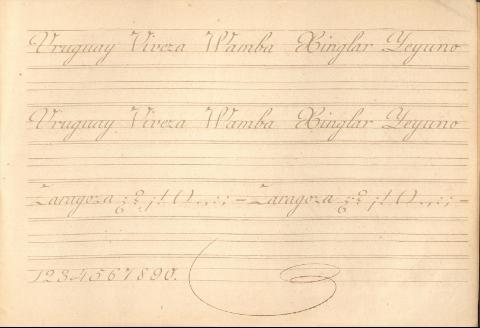 Uruguay Viveza Wamba Xinglar Yeyuno
Uruguay Viveza Wamba Xinglar Yeyuno
Zaragoza ¿? ¡! () . , : ; — Zaragoza ¿? ¡! () . , : ; —
1234567890.